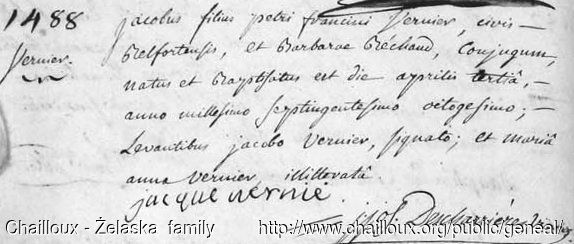 1488
Vernier.
jacobus filius petri francini Vernier, civis -
Belfortensis, et Barbarae Réchaud, Conjugum,
natus et Baptisatus est die aprilis tertiâ, -
anno millesimo septingentesimo octogesimo; -
Levantibus jacobo Vernier, signato; et mariâ
anna Vernier, illitteratâ
jacque vernie.
Chailloux - Żelaska family http://www.chailloux.org/public/geneal/